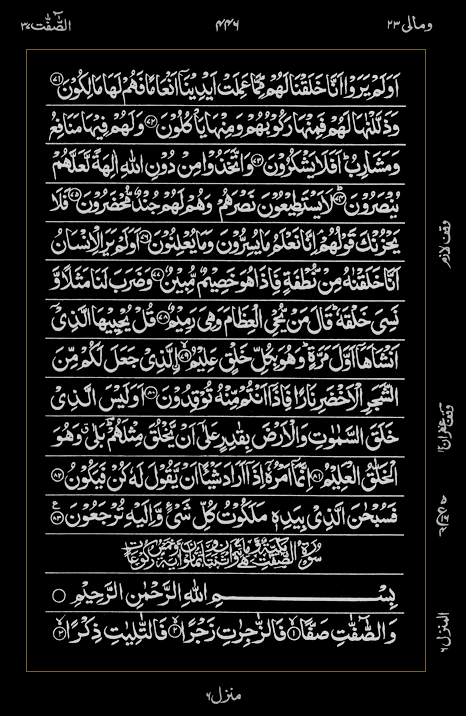 ومالی ۲۳ ۴۴۶ الصّٰٓفّٰت ۳۷
اَوَلَمۡ يَرَوۡا اَنَّا خَلَقۡنَا لَهُمۡ مِّمَّا عَمِلَتۡ اَيۡدِيۡنَاۤ اَنۡعَامًا فَهُمۡ لَهَا مَالِكُوۡنَ ﴿۷۱﴾
وَذَلَّلۡنٰهَا لَهُمۡ فَمِنۡهَا رَكُوۡبُهُمۡ وَمِنۡهَا يَاۡكُلُوۡنَ ﴿۷۲﴾ وَلَهُمۡ فِيۡهَا مَنَافِعُ
وَمَشَارِبُ ؕ اَفَلَا يَشۡكُرُوۡنَ ﴿۷۳﴾ وَاتَّخَذُوۡا مِنۡ دُوۡنِ اللّٰهِ اٰلِهَةً لَّعَلَّهُمۡ
يُنۡصَرُوۡنَ ؕ ﴿۷۴﴾ لَا يَسۡتَطِيۡعُوۡنَ نَصۡرَهُمۡ ۙ وَهُمۡ لَهُمۡ جُنۡدٌ مُّحۡضَرُوۡنَ ﴿۷۵﴾ فَلَا
يَحۡزُنۡكَ قَوۡلُهُمۡ ۘ اِنَّا نَعۡلَمُ مَا يُسِرُّوۡنَ وَمَا يُعۡلِنُوۡنَ ﴿۷۶﴾ اَوَلَمۡ يَرَ الۡاِنۡسَانُ
اَنَّا خَلَقۡنٰهُ مِنۡ نُّطۡفَةٍ فَاِذَا هُوَ خَصِيۡمٌ مُّبِيۡنٌ ﴿۷۷﴾ وَضَرَبَ لَنَا مَثَلًا وَّ
نَسِىَ خَلۡقَهٗ ؕ قَالَ مَنۡ يُّحۡىِ الۡعِظَامَ وَهِىَ رَمِيۡمٌ ﴿۷۸﴾ قُلۡ يُحۡيِيۡهَا الَّذِىۡۤ
اَنۡشَاَهَاۤ اَوَّلَ مَرَّةٍ ؕ وَهُوَ بِكُلِّ خَلۡقٍ عَلِيۡمُ ۙ ﴿۷۹﴾ اۨلَّذِىۡ جَعَلَ لَكُمۡ مِّنَ
الشَّجَرِ الۡاَخۡضَرِ نَارًا فَاِذَاۤ اَنۡتُمۡ مِّنۡهُ تُوۡقِدُوۡنَ ﴿۸۰﴾ اَوَلَيۡسَ الَّذِىۡ
خَلَقَ السَّمٰوٰتِ وَالۡاَرۡضَ بِقٰدِرٍ عَلٰٓى اَنۡ يَّخۡلُقَ مِثۡلَهُمۡ ؕ بَلٰى وَهُوَ
الۡخَلّٰقُ الۡعَلِيۡمُ ﴿۸۱﴾ اِنَّمَاۤ اَمۡرُهٗۤ اِذَاۤ اَرَادَ شَيۡـًٔا اَنۡ يَّقُوۡلَ لَهٗ كُنۡ فَيَكُوۡنُ ﴿۸۲﴾
فَسُبۡحٰنَ الَّذِىۡ بِيَدِهٖ مَلَكُوۡتُ كُلِّ شَىۡءٍ وَّاِلَيۡهِ تُرۡجَعُوۡنَ ﴿۸۳﴾ ع
بِسۡمِ اللّٰهِ الرَّحۡمٰنِ الرَّحِيۡمِ
وَالصّٰٓفّٰتِ صَفًّا ۙ ﴿۱﴾ فَالزّٰجِرٰتِ زَجۡرًا ۙ ﴿۲﴾ فَالتّٰلِيٰتِ ذِكۡرًا ۙ ﴿۳﴾
وقف لازم
وقف غفران
المنزل ۶
منزل ۶